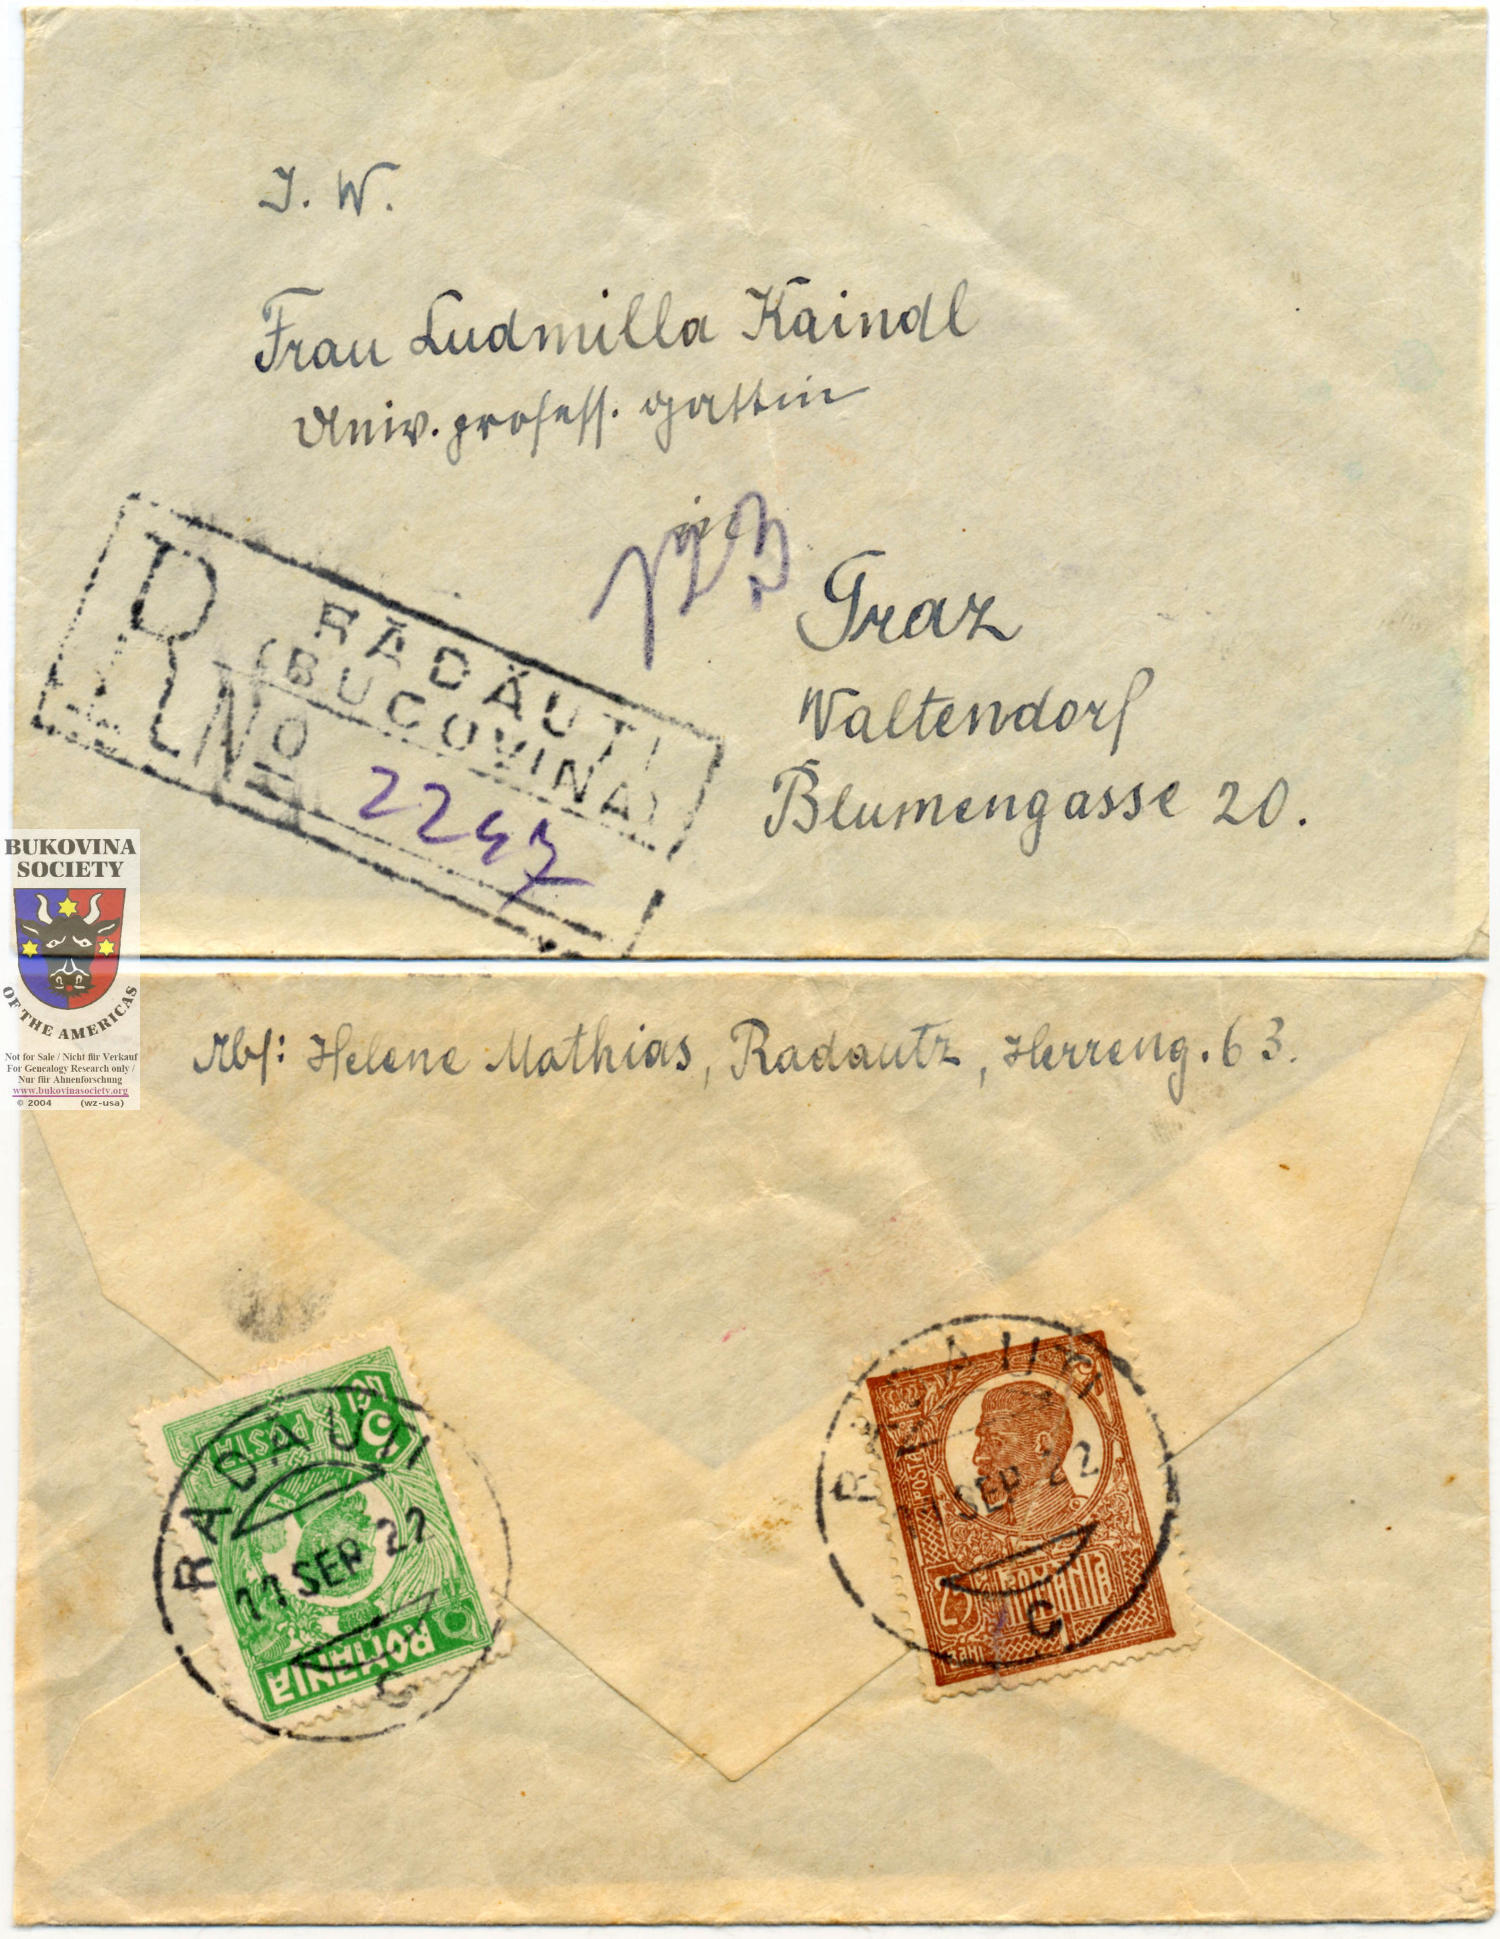 I. W.
Frau Ludmilla Kaindl
Univ. profess. gattin
in
Graz
Waltendorf
Blumengasse 20.
R
RĂDĂUȚI
(BUCOVINA)
No 2247
BUKOVINA
SOCIETY
OF THE AMERICAS
Not for Sale / Nicht für Verkauf
For Genealogy Research only /
Nur für Ahnenforschung
www.bukovinasociety.org
© 2004 (wz-usa)
Abs: Helene Mathias, Radautz, Herreng. 63.
5 LEI
POSTA
ROMANIA
RADAUTI
11 SEP 22
C
POSTA
ROMANIA
25
bani
RADAUTI
11 SEP 22
C